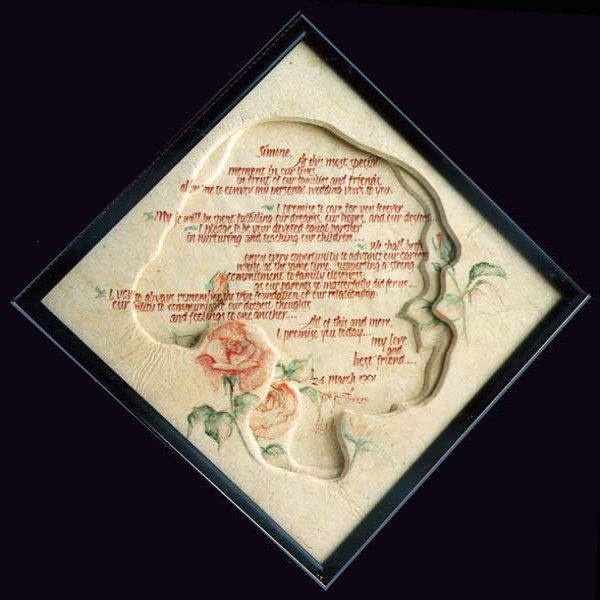 Simone,
At this most special
moment in our lives,
in front of our families and friends,
allow me to convey my personal wedding vows to you:
I promise to care for you forever...
My life will be spent fulfilling our dreams, our hopes, and our desires...
I pledge to be your devoted equal partner
in nurturing and teaching our children...
We shall both
enjoy every opportunity to advance our careers
while at the same time, supporting a strong
commitment to family closeness,
as our parents so masterfully did for us...
I vow to always remember the true foundation of our relationship:
our ability to communicate our deepest thoughts
and feelings to one another...
All of this and more,
I promise you today...
my love
and
best friend...
24 March 1991